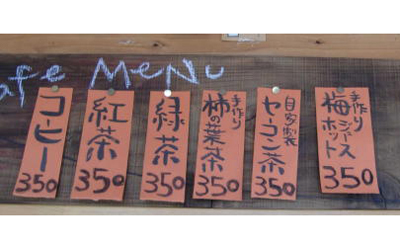 afe MENU
コーヒー
350
紅茶
350
緑茶
350
手作り
柿の葉茶
350
自家製
ヤーコン茶
350
手作り
梅ジュース
ホット
350